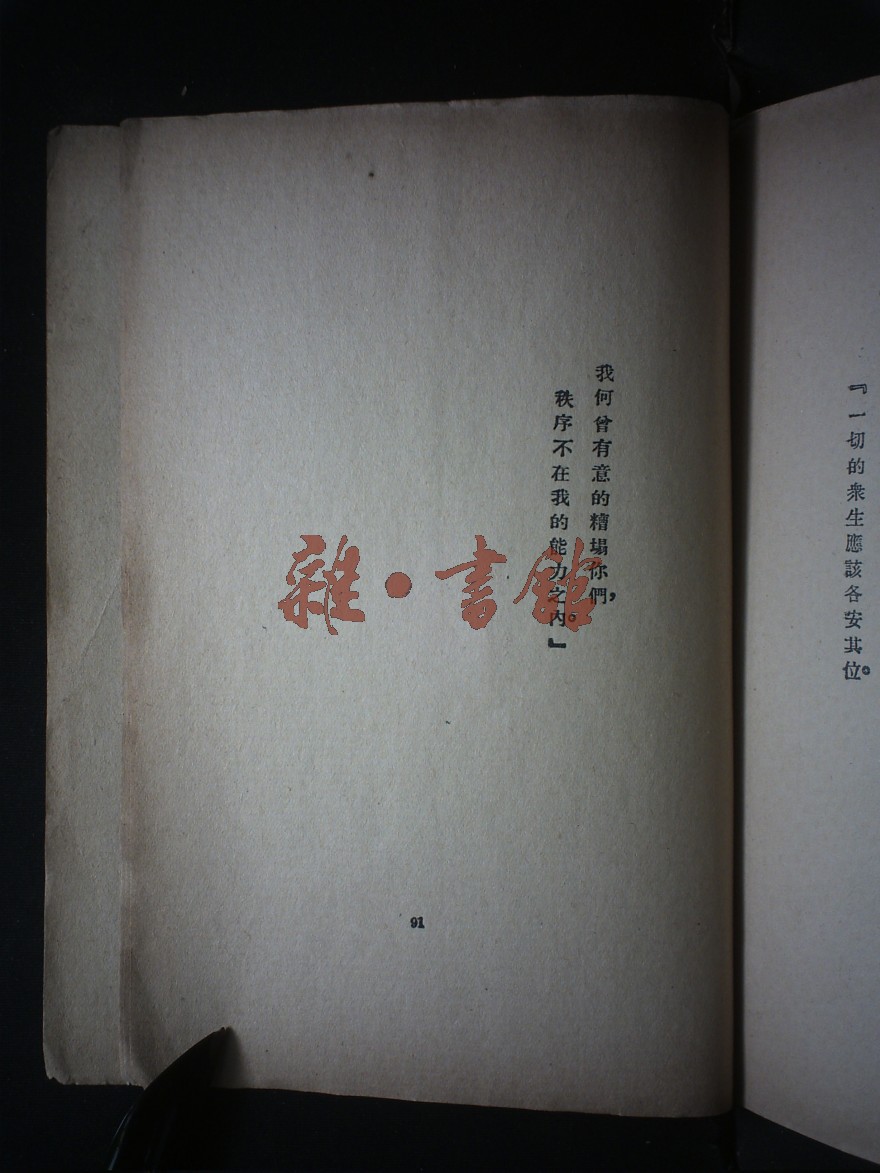 『一切的衆生應該各安其位。
我何曾有意的糟塌你們，
秩序不在我的能力之內。』
91
雜·書館